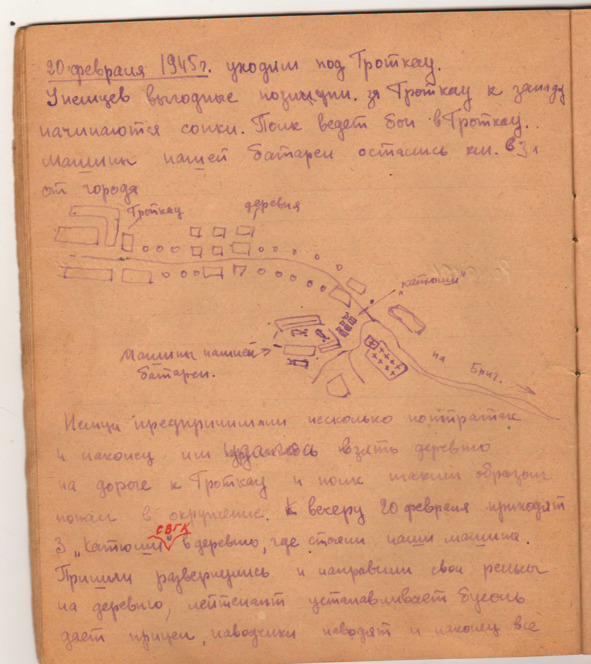 20 февраля 1945г. уходим под Гроткау.
У немцев выгодные позиции. за Гроткау к западу
начинаются сопки. Полк ведет бои в Гроткау.
Машины нашей батареи остались км. в 3х
от города
Гроткау деревня
"катюши"
Машины нашей
батареи.
на Бриг.
Немцы предпринимали несколько контратак
и наконец им удалось взять деревню
на дороге к Гроткау и полк таким образом
попал в окружение. К вечеру 20 февраля приходят
СВГК
3 "Катюши" в деревню, где стояли наши машины.
Пришли развернулись и направили свои рельсы
на деревню, лейтенант устанавливает бусоль
дает прицел, наводчики наводят и наконец всё